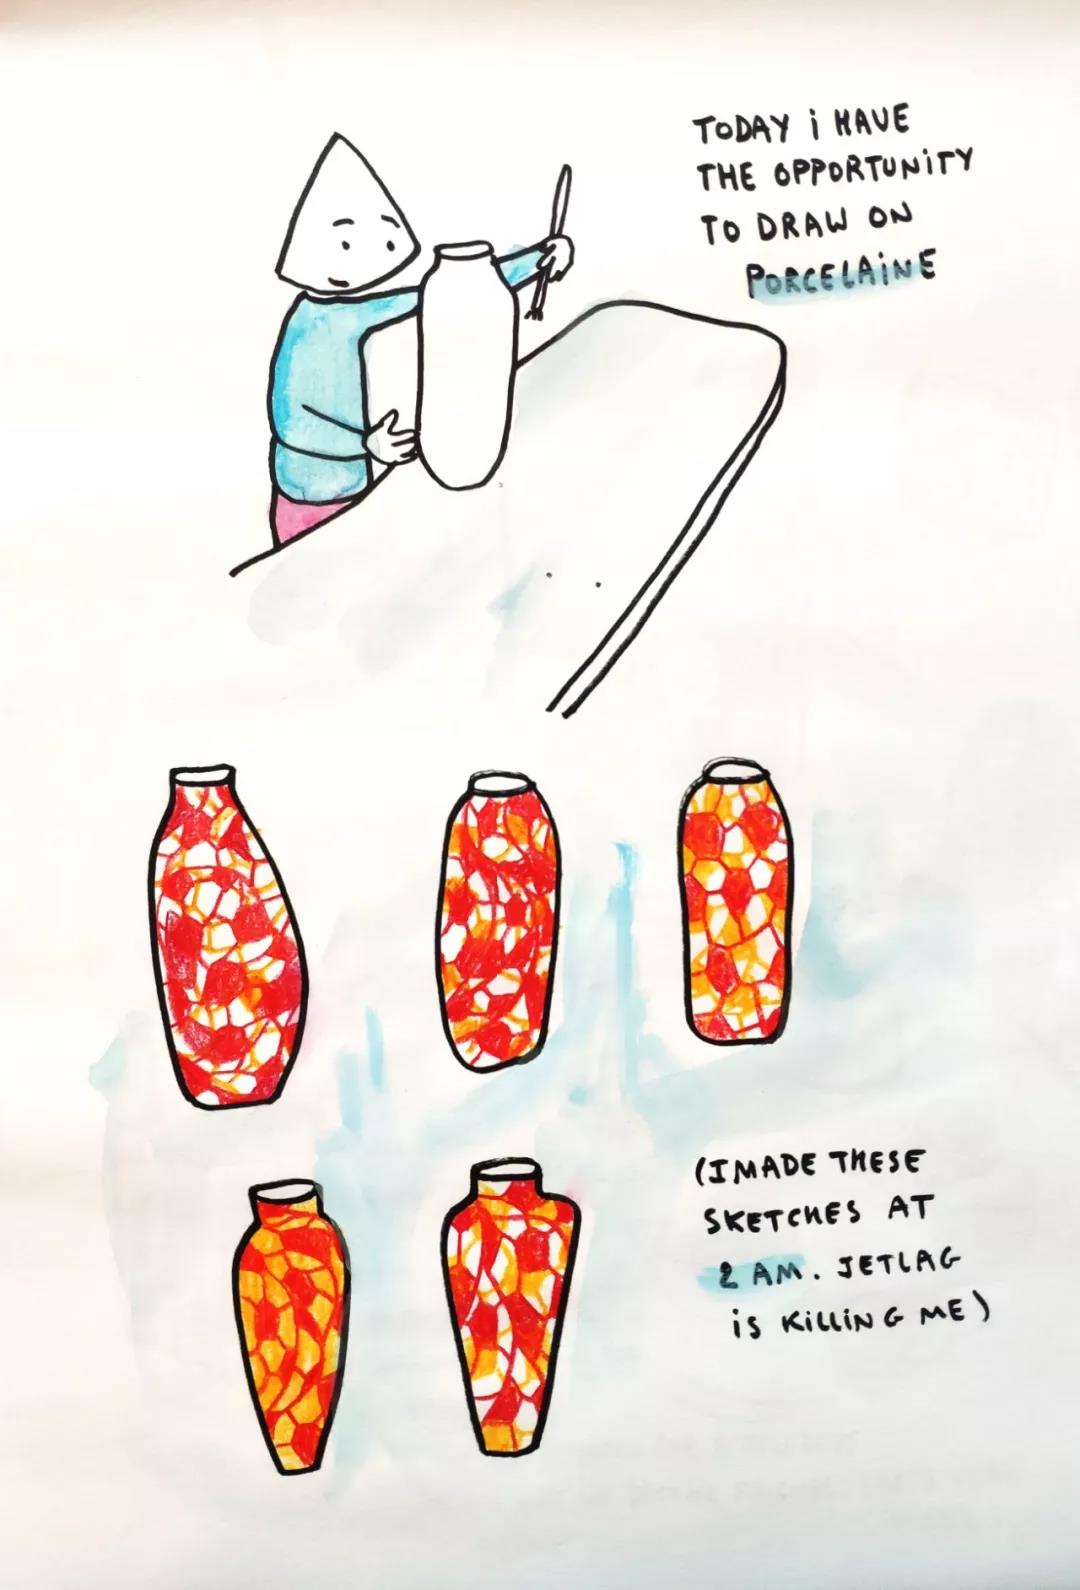 TODAY i HAVE
THE OPPORTUNiTY
TO DRAW ON
PORCELAiNE
(I MADE THESE
SKETCHES AT
2 AM. JETLAG
is KiLLiNG ME)